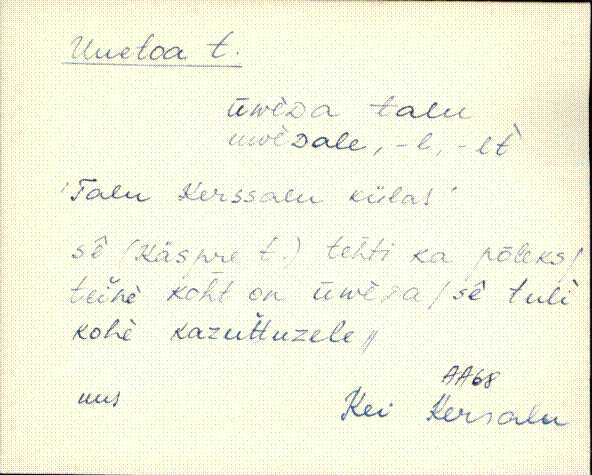 Uuetoa t.
ūwèDa talu
uwèDale, -l, -lt̀
'Talu Kerssalu külas'
sē̂ (Käspre t.) tehti ka põleks/
teińè koht on ūwèDa / sē̂ tuli
kohè kazuttuzele //
AA68
uus Kei Kersalu